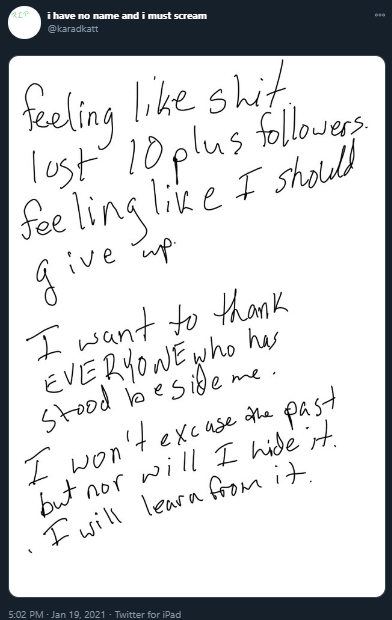 RLP
i have no name and i must scream
@karadkatt
feeling like shit.
lost 10 plus followers.
feeling like I should
give up.
I want to thank
EVERYONE who has
stood beside me.
I won't excuse the past
but nor will I hide it.
. I will learn from it.
5:02 PM · Jan 19, 2021 · Twitter for iPad